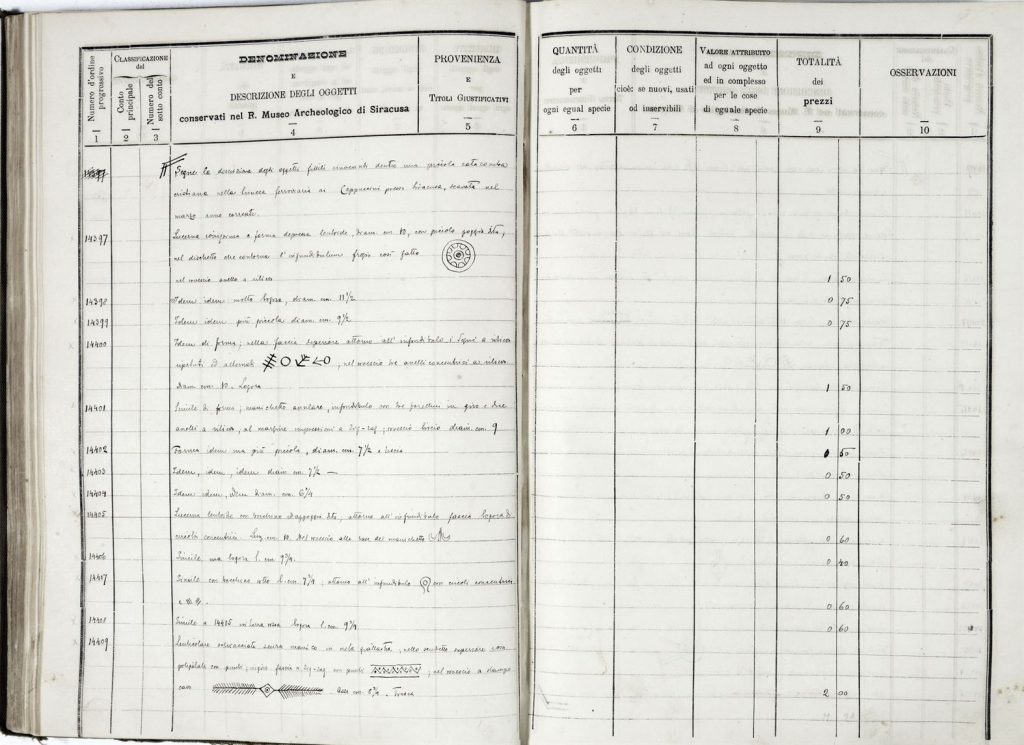 Numero d'ordine progressivo
1
CLASSIFICAZIONE del
Conto principale
2
Numero del sotto conto
3
DENOMINAZIONE
E
DESCRIZIONE DEGLI OGGETTI
conservati nel R. Museo Archeologico di Siracusa
4
PROVENIENZA
E
TITOLI GIUSTIFICATIVI
5
QUANTITÀ
degli oggetti
per
ogni egual specie
6
CONDIZIONE
degli oggetti
cioè: se nuovi, usati
od inservibili
7
VALORE ATTRIBUITO
ad ogni oggetto
ed in complesso
per le cose
di eguale specie
8
TOTALITÀ
dei
prezzi
9
OSSERVAZIONI
10
Segue la descrizione degli oggetti fittili rinvenuti dentro una piccola catacomba
cristiana nella trincea ferroviaria ai Cappuccini presso Siracusa, scavata nel
marzo anno corrente.
14397 Lucerna a forma depressa lentoide, diam. cm. 10, con piccolo
nel dischetto che contorna l'infundibulum fregio così fatto
nel rovescio anello a rilievo 1 50
14398 Idem idem molto logora, diam. cm. 11 1/2 0 75
14399 Idem idem più piccola diam. cm. 9 1/2 0 75
14400 Idem di forma; nella faccia superiore attorno all'infundibulo i segni a rilievo
ripetuti ed alternati , nel rovescio tre anelli concentrici a rilievo
diam cm. 10. Logora 1 50
14401 Simile di forma; manichetto anulare, infundibulo con tre forellini in giro e due
anelli a rilievo, al margine impressioni a zig-zag; rovescio liscio diam. cm 9 1 00
14402 Forma idem ma più piccola, diam. cm. 7 1/2 0 50
14403 Idem, idem, idem diam cm. 7 1/2 — 0 50
14404 Idem idem, diam. cm. 6 3/4 0 50
14405 Lucerna lentoide con attorno all'infundibulo fascia logora di
circoli concentrici. cm. 10. Nel rovescio alla base del manichetto 0 60
14406 Simile, ma logora l. cm. 9 3/4. 0 40
14407 Simile con rotto l. cm. 7 3/4; attorno all'infundibulo con circoli concentrici
0 60
Simile a 14405 in terra rossa logora l. cm. 9 3/4 0 60
14409 Lenticolare senza manico in creta giallastra; nello scudetto superiore rosa
con punti; segue fascia a zig-zag con punti ; nel rovescio a stampo
cavo cm. 8 1/2. Fresca 2 00